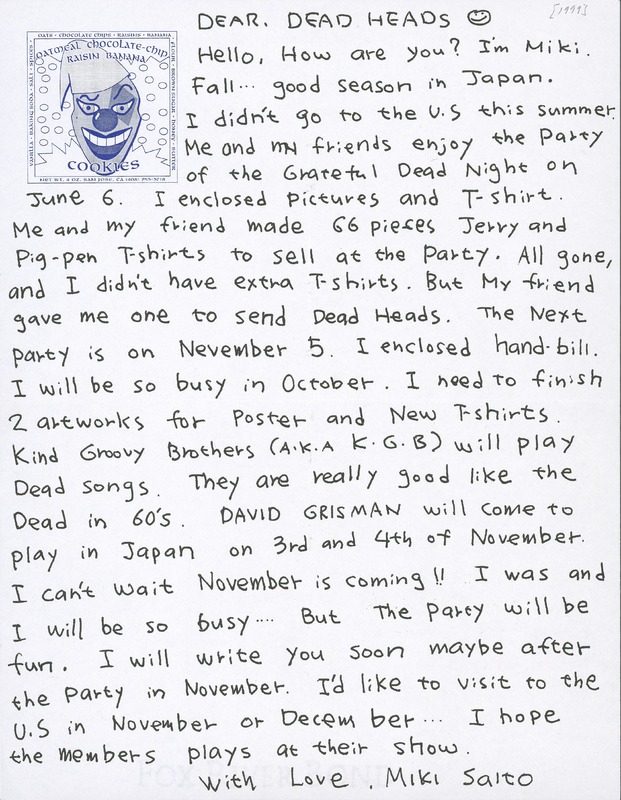 [1999]
OATS · CHOCOLATE CHIPS · RAISINS · BANANA
FLOUR · BROWN SUGAR · HONEY · BUTTER
VANILLA · BAKING SODA · SALT · SPICES
OATMEAL CHOCOLATE-CHIP
RAISIN BANANA
COOKIES
NET WT. 4 OZ. SAN JOSE, CA (408)
DEAR. DEAD HEADS ☺
Hello, How are you? I'm Miki.
Fall... good season in Japan.
I didn't go to the U.S this summer.
Me and my friends enjoy the Party
of the Grateful Dead Night on
June 6. I enclosed pictures and T-shirt.
Me and my friend made 66 pieces Jerry and
Pig-pen T-shirts to sell at the Party. All gone,
and I didn't have extra T-shirts. But My friend
gave me one to send Dead Heads. The Next
party is on Nevember 5. I enclosed hand-bill.
I will be so busy in October. I need to finish
2 artworks for Poster and New T-shirts.
Kind Groovy Brothers (A.K.A K.G.B) will play
Dead songs. They are really good like the
Dead in 60's. DAVID GRISMAN will come to
play in Japan on 3rd and 4th of November.
I can't wait November is coming!! I was and
I will be so busy.... But The Party will be
fun. I will write you soon maybe after
the Party in November. I'd like to visit to the
U.S in November or December... I hope
the members plays at their show.
With Love, Miki Saito
FOX RIVER BOND